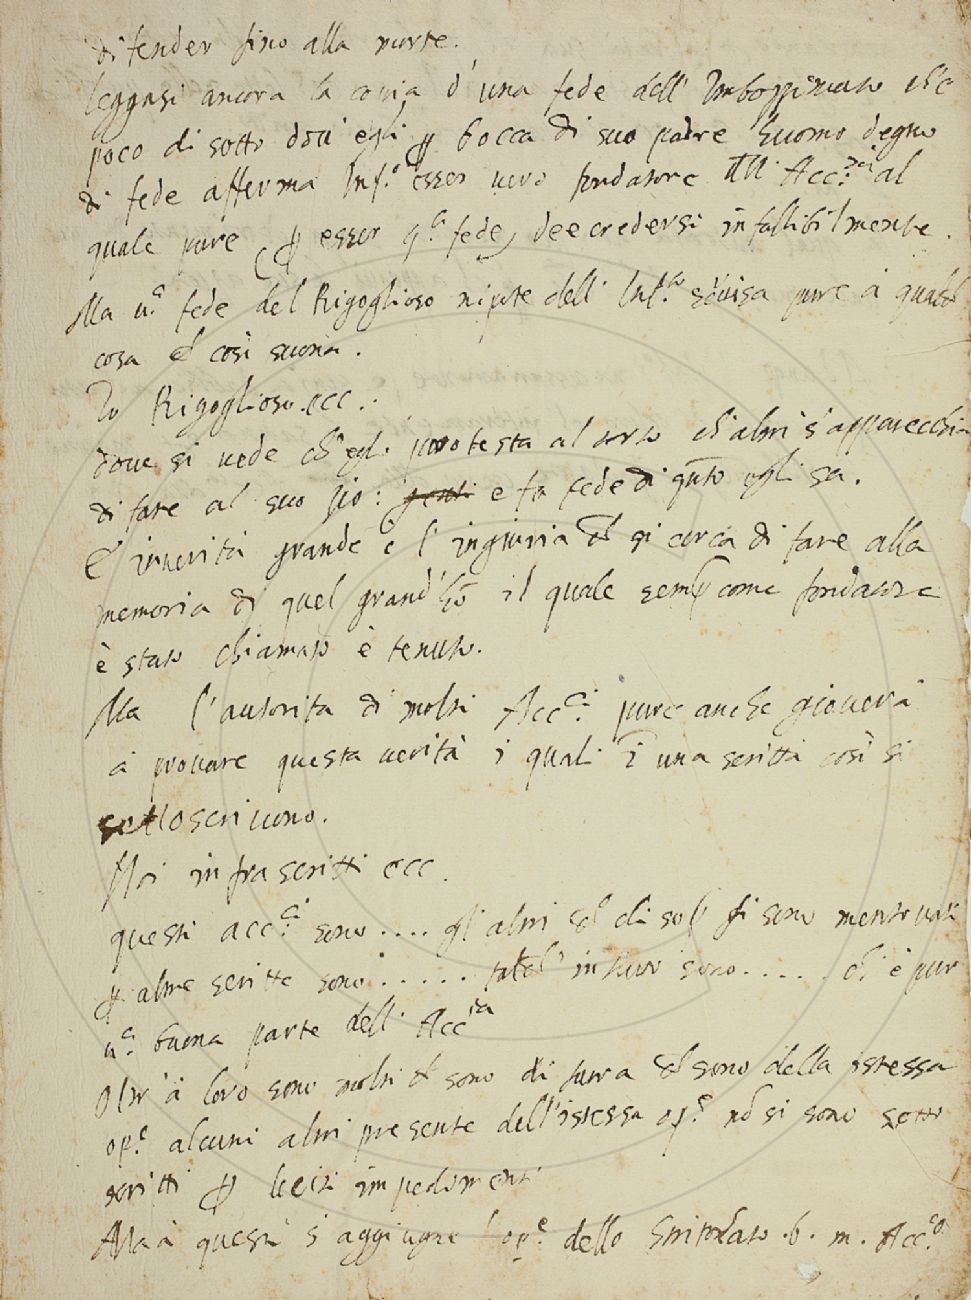 difender fino alla morte.
leggasi ancora la copia d'una fede dell' che
poco di sotto dou' egli ꝑ bocca di suo padre huomo degno
di fede afferma Inf.º esser uero fondatore dll' Acc.ª al
quale pure ꝑ esser q.ª fede, dee credersi infallibilmente.
Ma u.ª fede del Rigoglioso nipote dell' Inf.º pure à qualc
cosa e così suona.
Io Rigoglioso. ecc..
doue si uede ch' egli protesta al torto ch' altri s'apparecchia
di fare al suo zio: e fa fede di qũto egli sa.
E inuerità grande è l'ingiuria ch si cerca di fare alla
memoria di quel grand' hõ il quale semp come fondatore
è stato chiamato è tenuto.
Ma l'autorita di molti Acc.ci pure anche giouerà
à prouare questa uerità i quali ĩ una scritta così si
sottoscriuono.
Noi infrascritti ecc.
questi acc.ci sono.... gl'altri ch di sop si sono mentouati
ꝑ altre scritte sono..... talch' in tutto sono..... ch' è pur
u.ª buona parte dell' Acc.ia
Oltr' à loro sono molti ch sono di fuora ch sono della istessa
op.e alcuni altri presente dell'istessa op.e nõ si sono sotto
scritti ꝑ leciti impedimenti
Ma à questi s'aggiugne l'op.e dello b. m. Acc.co